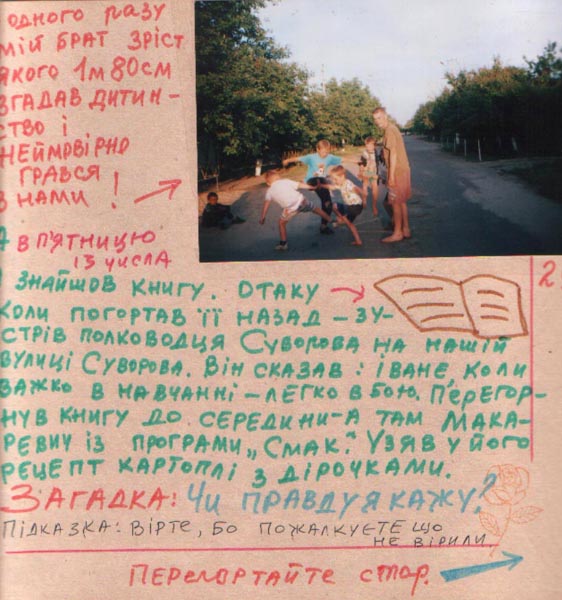 одного разу
мій брат зріст
якого 1м 80см
згадав дитин-
ство і
неймовірно
грався
з нами!
А в п'ятницю
13 числа
я знайшов книгу. Отаку
2
коли погортав її назад – зу-
стрів полководця Суворова на нашій
вулиці Суворова. Він сказав: Іване, коли
важко в навчанні – легко в бою. Перегор-
нув книгу до середини – а там Мака-
ревич із програми „Смак". Узяв у його
рецепт картоплі з дірочками.
Загадка: Чи правду я кажу?
Підказка: вірте, бо пожалкуєте що
не вірили.
Перегортайте стор.